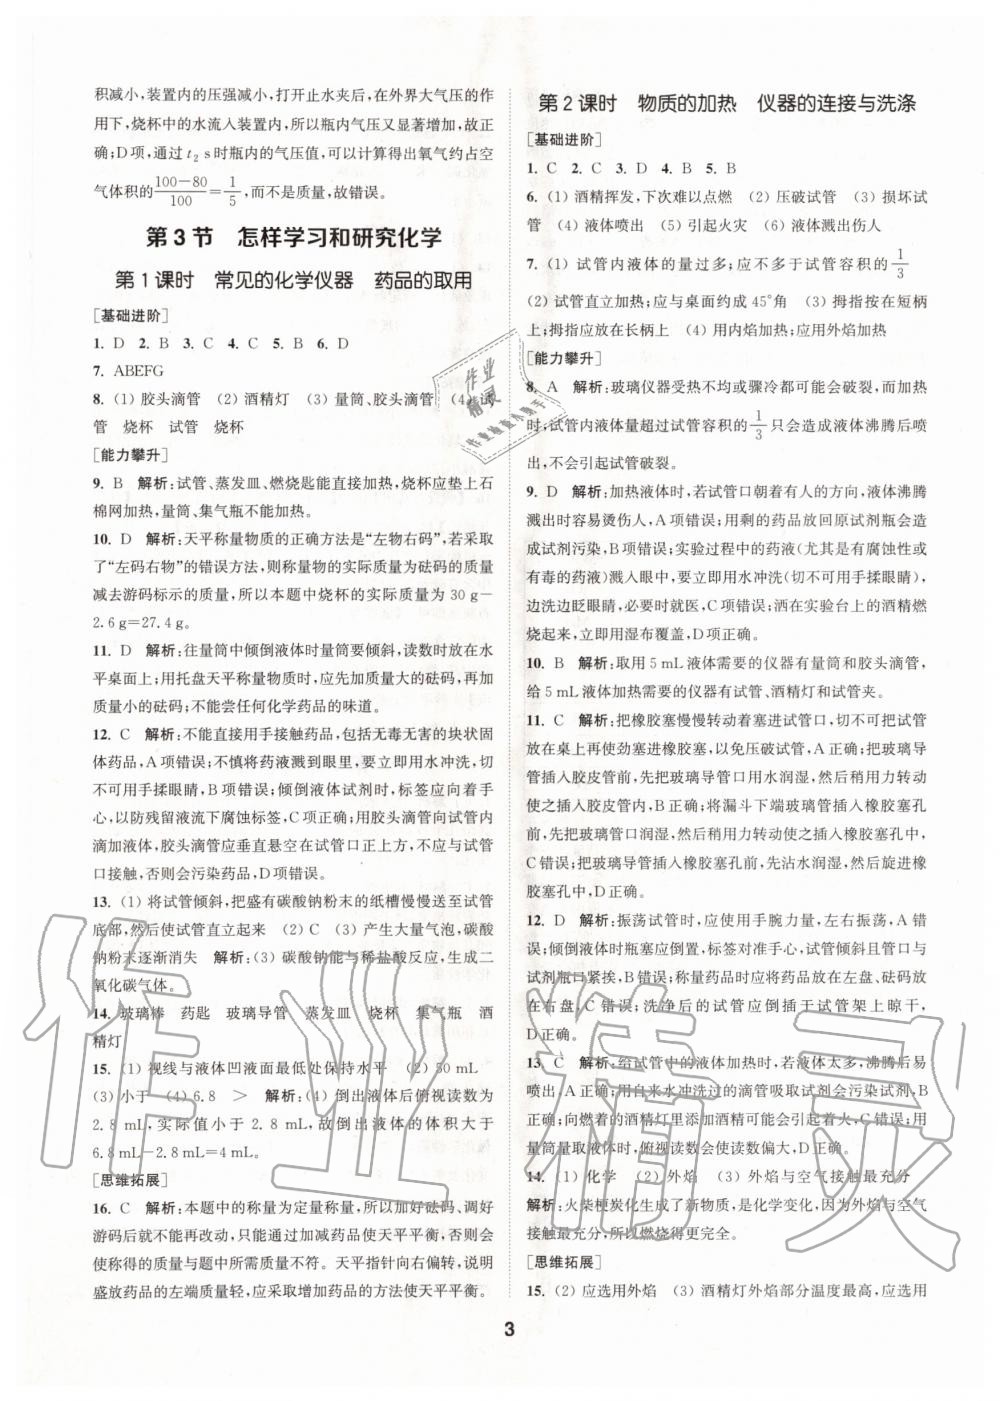 积减小,装置内的压强减小,打开止水夹后,在外界大气压的作
用下,烧杯中的水流入装置内,所以瓶内气压又显著增加,故正
确;D项,通过 t₂ s时瓶内的气压值,可以计算得出氧气约占空
气体积的(100-80)/100=1/5,而不是质量,故错误。
第3节 怎样学习和研究化学
第1课时 常见的化学仪器 药品的取用
[基础进阶]
1. D 2. B 3. C 4. C 5. B 6. D
7. ABEFG
8. (1) 胶头滴管 (2) 酒精灯 (3) 量筒、胶头滴管 (4) 试
管 烧杯 试管 烧杯
[能力攀升]
9. B 解析:试管、蒸发皿、燃烧匙能直接加热,烧杯应垫上石
棉网加热,量筒、集气瓶不能加热。
10. D 解析:天平称量物质的正确方法是“左物右码”,若采取
了“左码右物”的错误方法,则称量物的实际质量为砝码的质量
减去游码标示的质量,所以本题中烧杯的实际质量为 30 g-
2.6 g=27.4 g。
11. D 解析:往量筒中倾倒液体时量筒要倾斜,读数时放在水
平桌面上;用托盘天平称量物质时,应先加质量大的砝码,再加
质量小的砝码;不能尝任何化学药品的味道。
12. C 解析:不能直接用手接触药品,包括无毒无害的块状固
体药品,A项错误;不慎将药液溅到手上,立即用水冲洗,切不
可用舌头舔净,B项错误;倾倒液体试剂时,标签应向着手
心,以防残留液流下腐蚀标签,C项正确;用胶头滴管向试管内
滴加液体时,胶头滴管应垂直悬空在试管口正上方,不应与试管
口接触,否则会污染药品,D项错误。
13. (1) 将试管倾斜,把盛有碳酸钠粉末的纸槽慢慢送至试管
底部,然后使试管直立起来 (2) C (3) 产生大量气泡,碳酸
钠粉末逐渐消失 解析:(3) 碳酸钠能与稀盐酸反应,生成二
氧化碳气体。
14. 玻璃棒 药匙 玻璃导管 蒸发皿 烧杯 集气瓶 酒
精灯
15. (1) 视线与液体凹液面最低处保持水平 (2) 50 mL
(3) 小于 (4) 6.8 > 解析:(4) 倒出液体后俯视读数为
2.8 mL,实际值小于 2.8 mL,故倒出液体的体积大于
6.8 mL-2.8 mL=4 mL。
[思维拓展]
16. C 解析:本题中的称量为定量称量,所以加好砝码、调好
游码后就不能再改动,只能通过加减药品使天平平衡,否则使
称得的质量与题中所需质量不符。天平指针向右偏转,说明
盛放药品的左端质量轻,应采取增加药品的方法使天平平衡。
第2课时 物质的加热 仪器的连接与洗涤
[基础进阶]
1. C 2. C 3. D 4. B 5. B
6. (1) 酒精挥发,下次难以点燃 (2) 压破试管 (3) 损坏试
管 (4) 液体喷出 (5) 引起火灾 (6) 液体溅出伤人
7. (1) 试管内液体的量过多;应不多于试管容积的 1/3
(2) 试管直立加热;应与桌面约成 45°角 (3) 拇指按在短柄
上;拇指应放在长柄上 (4) 用内焰加热;应用外焰加热
[能力攀升]
8. A 解析:玻璃仪器受热不均或骤冷都可能会破裂,而加热
时,试管内液体量超过试管容积的 1/3 只会造成液体沸腾后喷
出,不会引起试管破裂。
9. D 解析:加热液体时,若试管口朝着有人的方向,液体沸腾
溅出时容易烫伤人,A项错误;用剩的药品放回原试剂瓶会造
成试剂污染,B项错误;实验过程中的药液(尤其是有腐蚀性或
有毒的药液)溅入眼中,要立即用水冲洗(切不可用手揉眼睛),
边洗边眨眼睛,必要时就医,C项错误;洒在实验台上的酒精燃
烧起来,立即用湿布覆盖,D项正确。
10. B 解析:取用 5 mL 液体需要的仪器有量筒和胶头滴管,
给 5 mL 液体加热需要的仪器有试管、酒精灯和试管夹。
11. C 解析:把橡胶塞慢慢转动着塞进试管口,切不可把试管
放在桌上再使劲塞进橡胶塞,以免压破试管,A正确;把玻璃导
管插入胶皮管前,先把玻璃导管口用水润湿,然后稍用力转动
使之插入胶皮管内,B正确;将漏斗下端玻璃管插入橡胶塞孔
前,先把玻璃管口润湿,然后稍用力转动使之插入橡胶塞孔中,
C错误;把玻璃导管插入橡胶塞孔前,先沾水润湿,然后旋进橡
胶塞孔中,D正确。
12. D 解析:振荡试管时,应使用手腕力量,左右振荡,A错
误;倾倒液体时瓶塞应倒置,标签对准手心,试管倾斜且管口与
试剂瓶口紧挨,B错误;称量药品时应将药品放在左盘、砝码放
在右盘,C错误;洗净后的试管应倒插于试管架上晾干,
D正确。
13. C 解析:给试管中的液体加热时,若液体太多,沸腾后易
喷出,A正确;用自来水冲洗过的滴管吸取试剂会污染试剂,B
正确;向燃着的酒精灯里添加酒精可能会引起着火,C错误;用
量筒量取液体时,俯视读数会使读数偏大,D正确。
14. (1) 化学 (2) 外焰 (3) 外焰与空气接触最充分
解析:火柴梗炭化生成了新物质,是化学变化,因为外焰与空气
接触最充分,所以燃烧得更完全。
[思维拓展]
15. (2) 应选用外焰 (3) 酒精灯外焰部分温度最高,应选用
3
作业
精灵
作业检查小助手
作业精灵